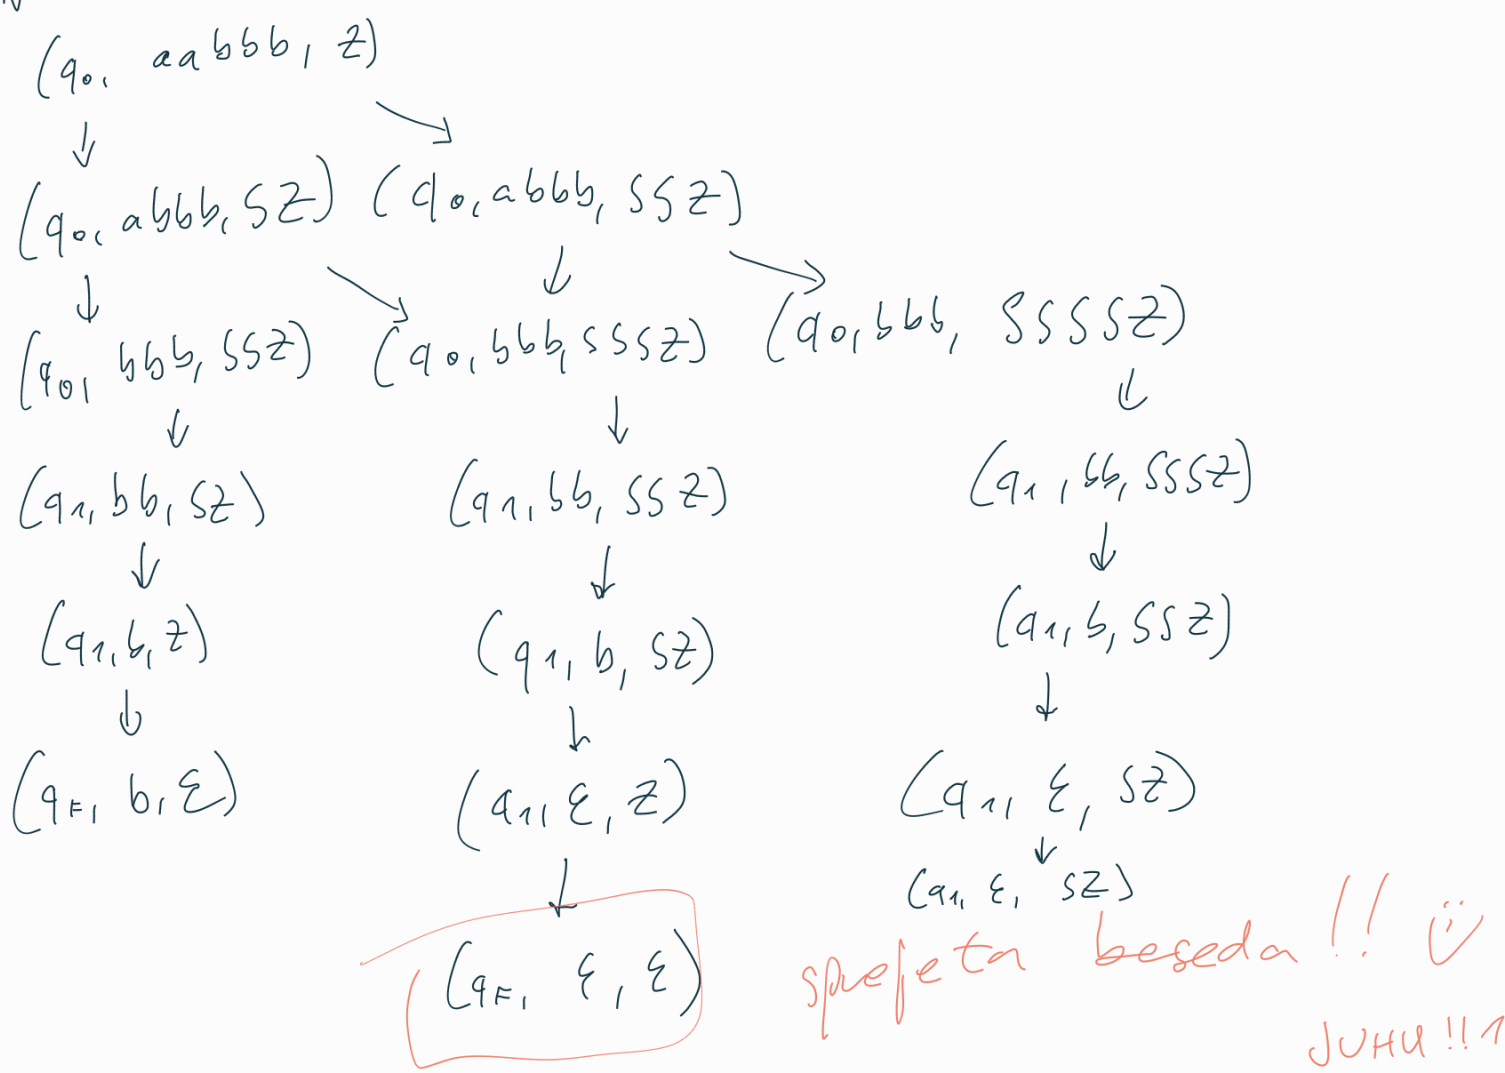 (q₀, aabbb, Z)
(q₀, abbb, SZ) (q₀, abbb, SSZ)
(q₀, bbb, SSZ) (q₀, bbb, SSSZ) (q₀, bbb, SSSSZ)
(q₁, bb, SZ) (q₁, bb, SSZ) (q₁, bb, SSSZ)
(q₁, b, Z) (q₁, b, SZ) (q₁, b, SSZ)
(q_F, b, ε) (q₁, ε, Z) (q₁, ε, SZ)
(q₁, ε, SZ)
(q_F, ε, ε) sprejeta beseda!! :)
JUHU!!1